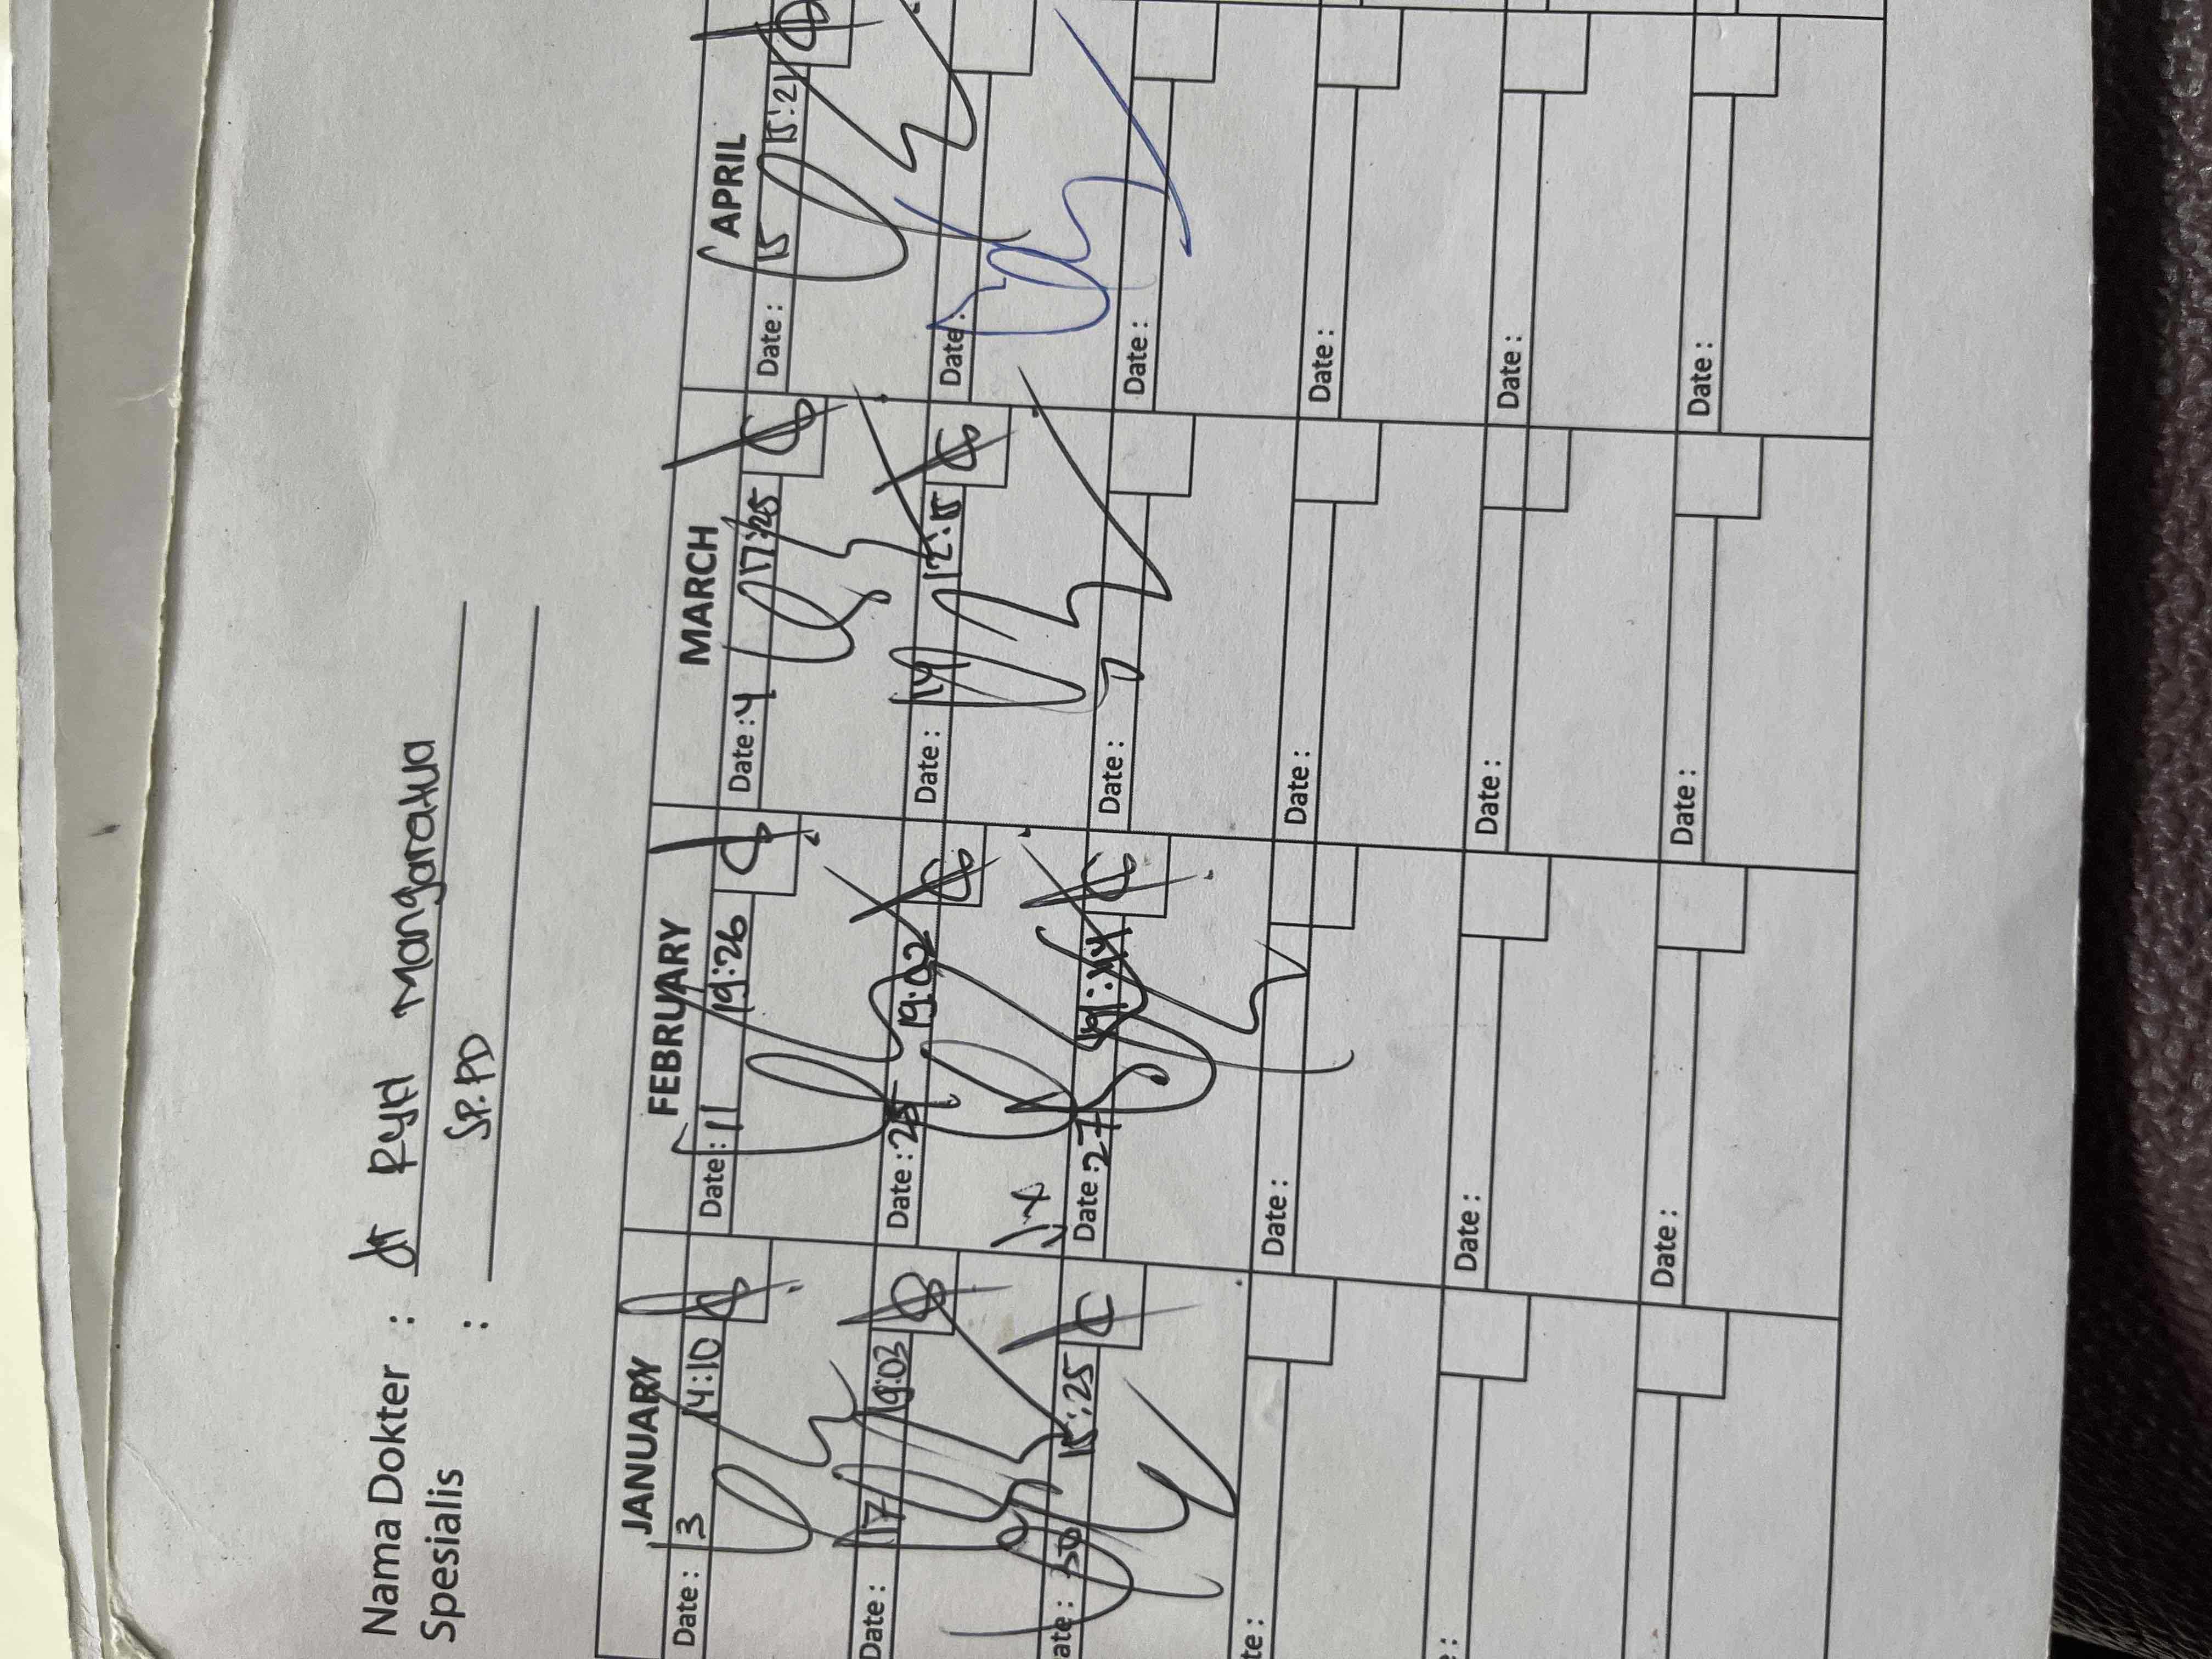 Nama Dokter : dr Ryri Mangaratua
Spesialis : SP.PD
JANUARY FEBRUARY MARCH APRIL
Date : 3 14:10 Date : 11 19:26 Date : 4 17:25 Date : 15 15:21
Date : 17 19:03 Date : 25 19:02 Date : 14 12:15 Date :
ate : 30 15:25 Date : 27 19:44 Date : Date :
te : Date : Date : Date :
e : Date : Date : Date :
Date : Date : Date :